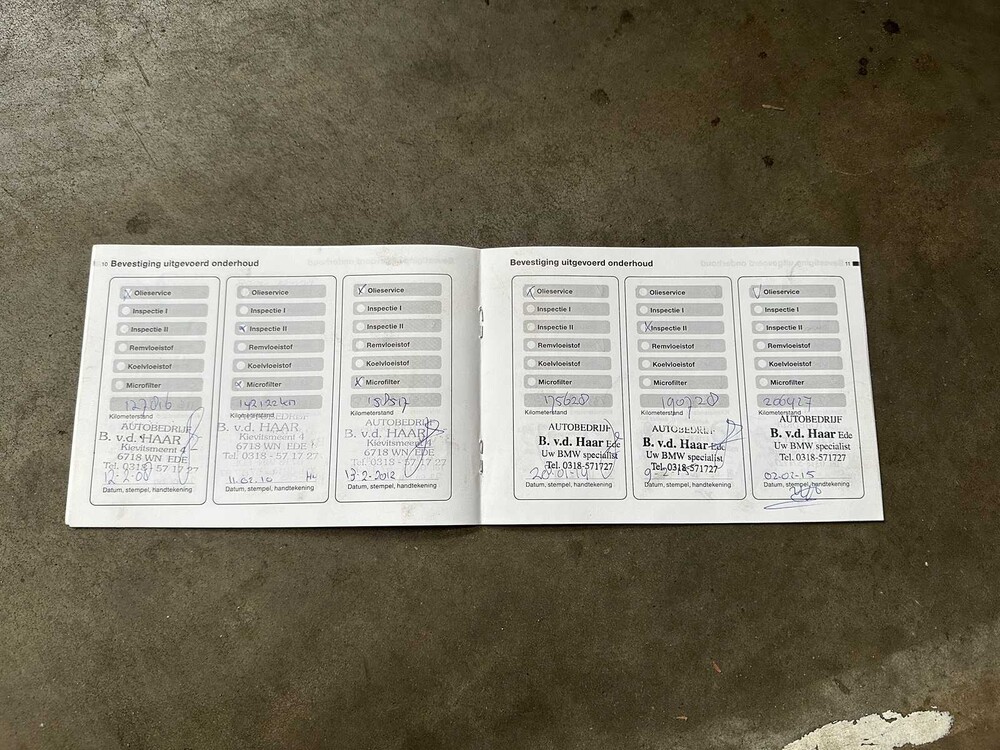 10 Bevestiging uitgevoerd onderhoud
X Olieservice
Inspectie I
Inspectie II
Remvloeistof
Koelvloeistof
Microfilter
127816
Kilometerstand
AUTOBEDRIJF
B. v.d. HAAR
Kievitsmeent 4
6718 WN EDE
Tel. 0318-57 17 27
12-2-08
Datum, stempel, handtekening
Olieservice
Inspectie I
X Inspectie II
Remvloeistof
Koelvloeistof
X Microfilter
142122km
Kilometerstand
AUTOBEDRIJF
B. v.d. HAAR
Kievitsmeent 4
6718 WN EDE
Tel. 0318 - 57 17 27
11.02.10
Datum, stempel, handtekening
X Olieservice
Inspectie I
Inspectie II
Remvloeistof
Koelvloeistof
X Microfilter
158517
Kilometerstand
AUTOBEDRIJF
B. v.d. HAAR
Kievitsmeent 4
6718 WN EDE
Tel. 0318 - 57 17 27
13-2-2012
Datum, stempel, handtekening
Bevestiging uitgevoerd onderhoud 11
X Olieservice
Inspectie I
Inspectie II
Remvloeistof
Koelvloeistof
Microfilter
175628
Kilometerstand
AUTOBEDRIJF
B. v.d. Haar Ede
Uw BMW specialist
Tel. 0318-571727
Datum, stempel, handtekening
Olieservice
Inspectie I
X Inspectie II
Remvloeistof
Koelvloeistof
Microfilter
190728
Kilometerstand
AUTOBEDRIJF
B. v.d. Haar Ede
Uw BMW specialist
Tel. 0318-571727
Datum, stempel, handtekening
V Olieservice
Inspectie I
Inspectie II
Remvloeistof
Koelvloeistof
Microfilter
200427
Kilometerstand
AUTOBEDRIJF
B. v.d. Haar Ede
Uw BMW specialist
Tel. 0318-571727
02-02-15
Datum, stempel, handtekening